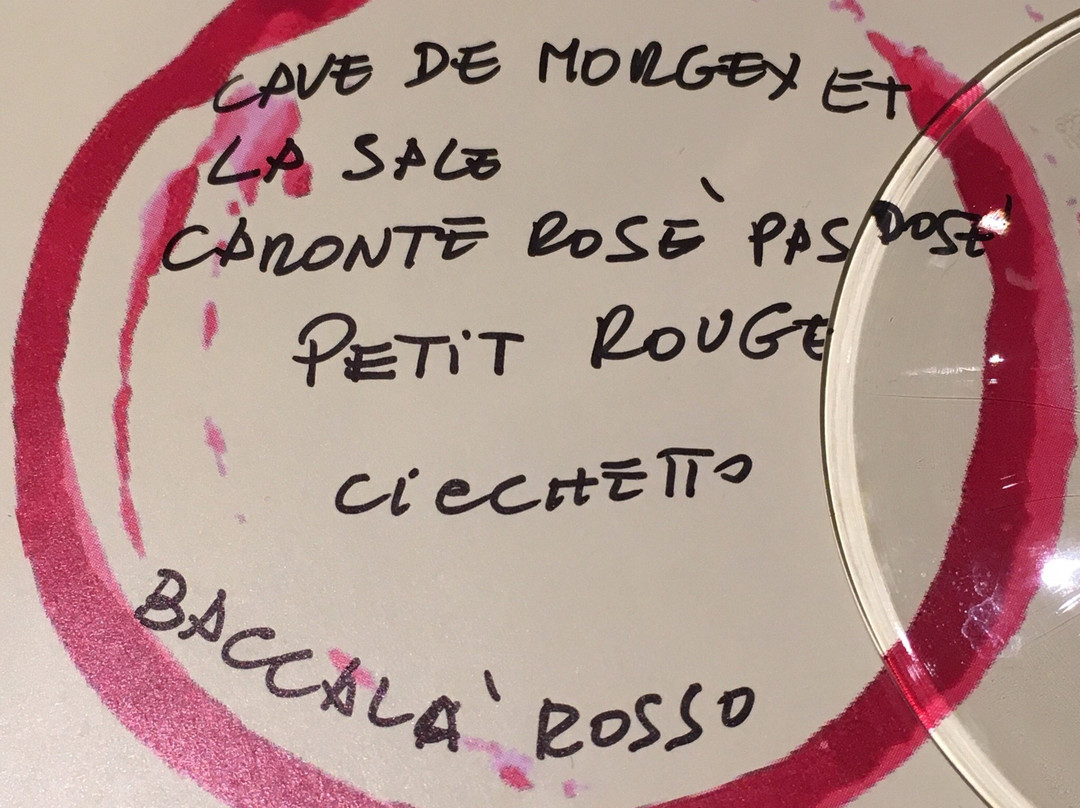 CAVE DE MORGEX ET
LA SALE
CARONTE ROSÈ PAS DOSÉ
PETIT ROUGE
CIECHETTO
BACCALÀ ROSSO